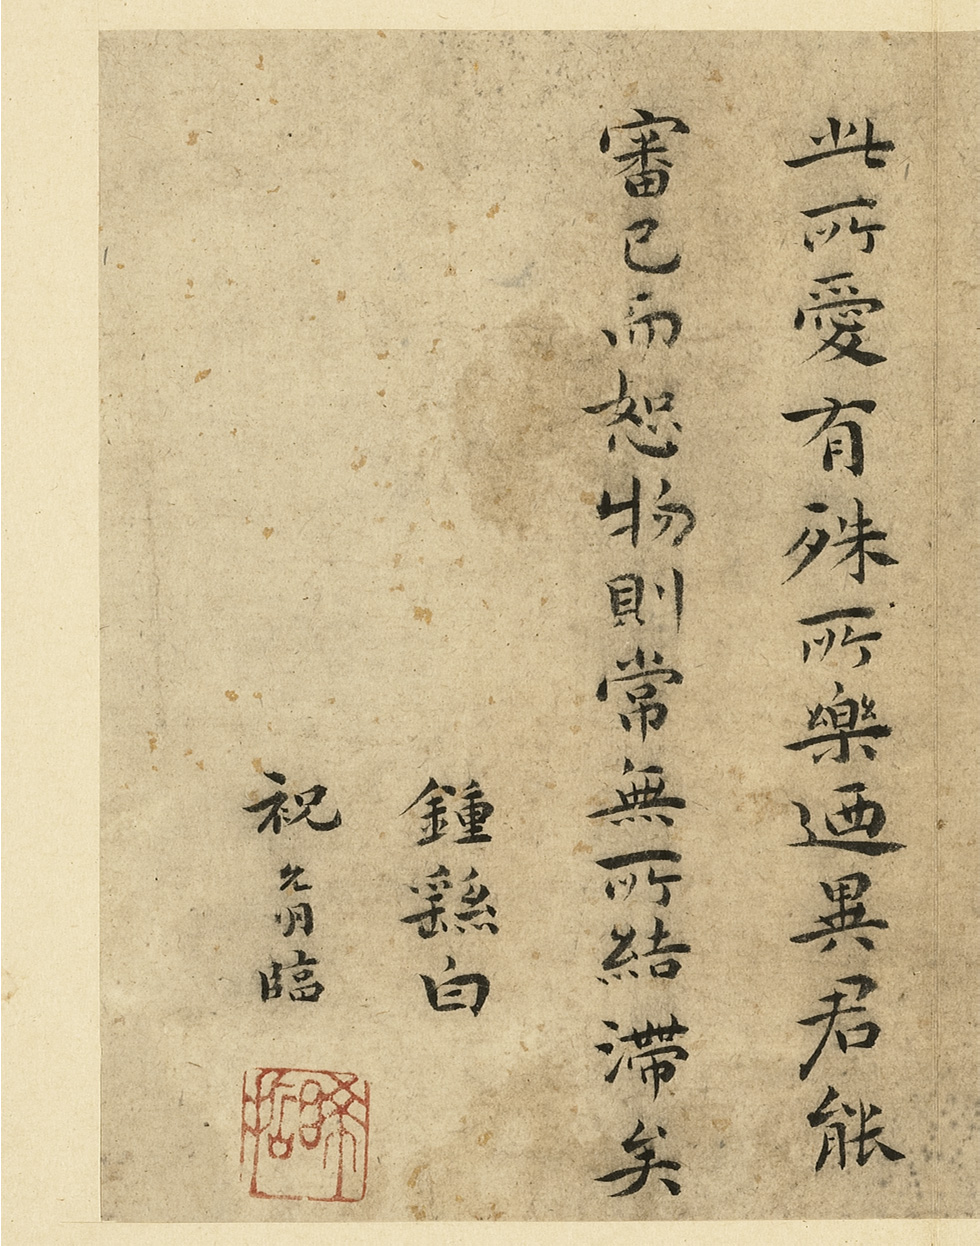 此所愛有殊所樂迺異君能
審己而恕物則常無所結滯矣
鍾繇白
祝允明臨
晞哲